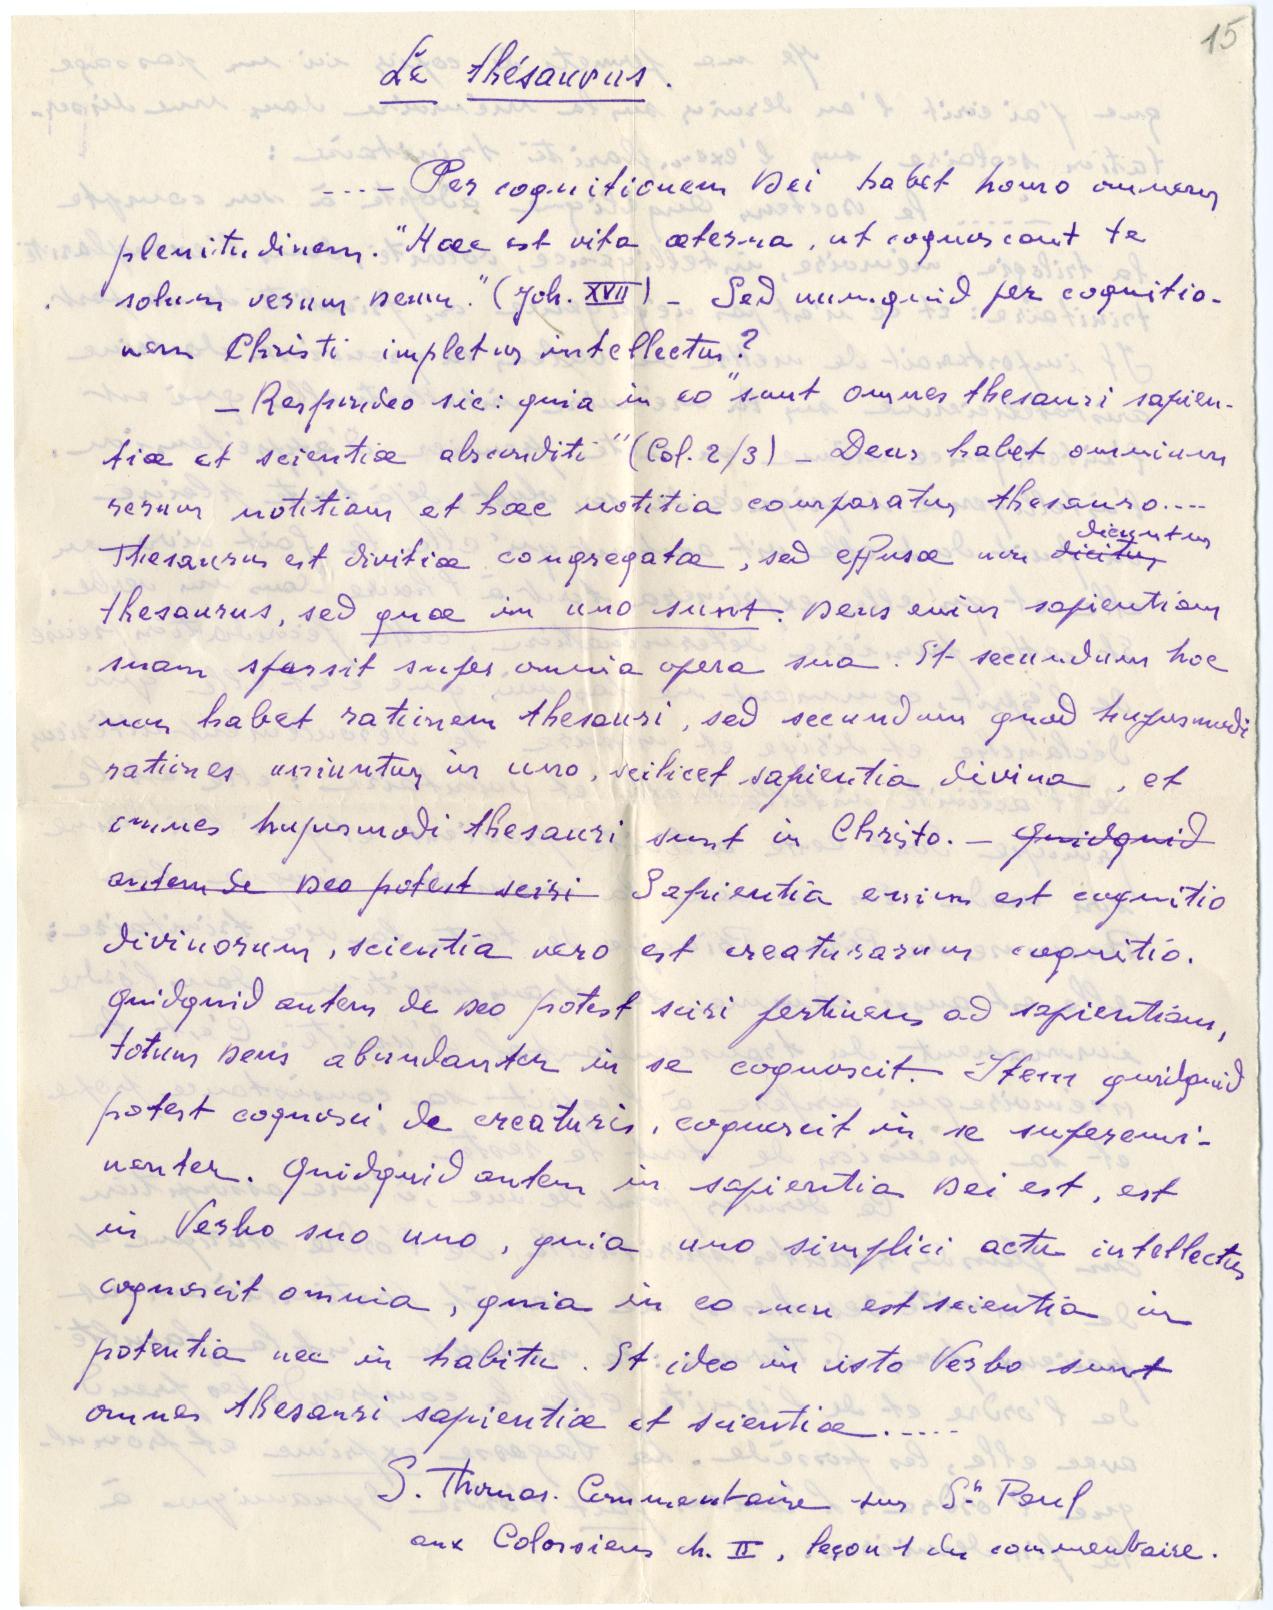 15
Le thésaurus.
---- Per cognitionem Dei habet homo omnem
plenitudinem. "Haec est vita æterna, ut cognoscant te
solum verum Deum." (Joh. XVII) _ Sed numquid per cognitio-
nem Christi impletur intellectus?
_ Respondeo sic: quia in eo "sunt omnes thesauri sapien-
tiæ et scientiæ absconditi" (Col. 2/3) _ Deus habet omnium
rerum notitiam et hæc notitia comparatur thesauro....
dicuntur
Thesaurus est divitiæ congregatæ, sed effusæ non dicitur
thesaurus, sed quæ in uno sunt. Deus enim sapientiam
suam sparsit super omnia opera sua. Et secundum hoc
non habet rationem thesauri, sed secundum quod hujusmodi
rationes uniuntur in uno, scilicet sapientia divina, et
omnes hujusmodi thesauri sunt in Christo. _ Quidquid
autem de Deo potest sciri Sapientia enim est cognitio
divinorum, scientia vero est creaturarum cognitio.
Quidquid autem de Deo potest sciri pertinens ad sapientiam,
totum Deus abundanter in se cognoscit. Item quidquid
potest cognosci de creaturis, cognoscit in se superemi-
nenter. Quidquid autem in sapientia Dei est, est
in Verbo suo uno, quia uno simplici actu intellectus
cognoscit omnia, quia in eo non est scientia in
potentia nec in habitu. Et ideo in isto Verbo sunt
omnes thesauri sapientiæ et scientiæ.....
S. Thomas. Commentaire sur St Paul
aux Colossiens ch. II, leçon 1 du commentaire.